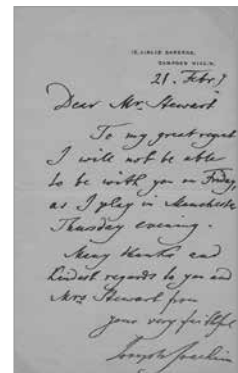 12, AIRLIE GARDENS,
CAMPDEN HILL, W.
21. Febr.
Dear Mr. Stewart
To my great regret
I will not be able
to be with you on Friday,
as I play in Manchester
Thursday evening.
Many thanks and
kindest regards to you and
Mrs. Stewart from
yours very faithful
Joseph Joachim